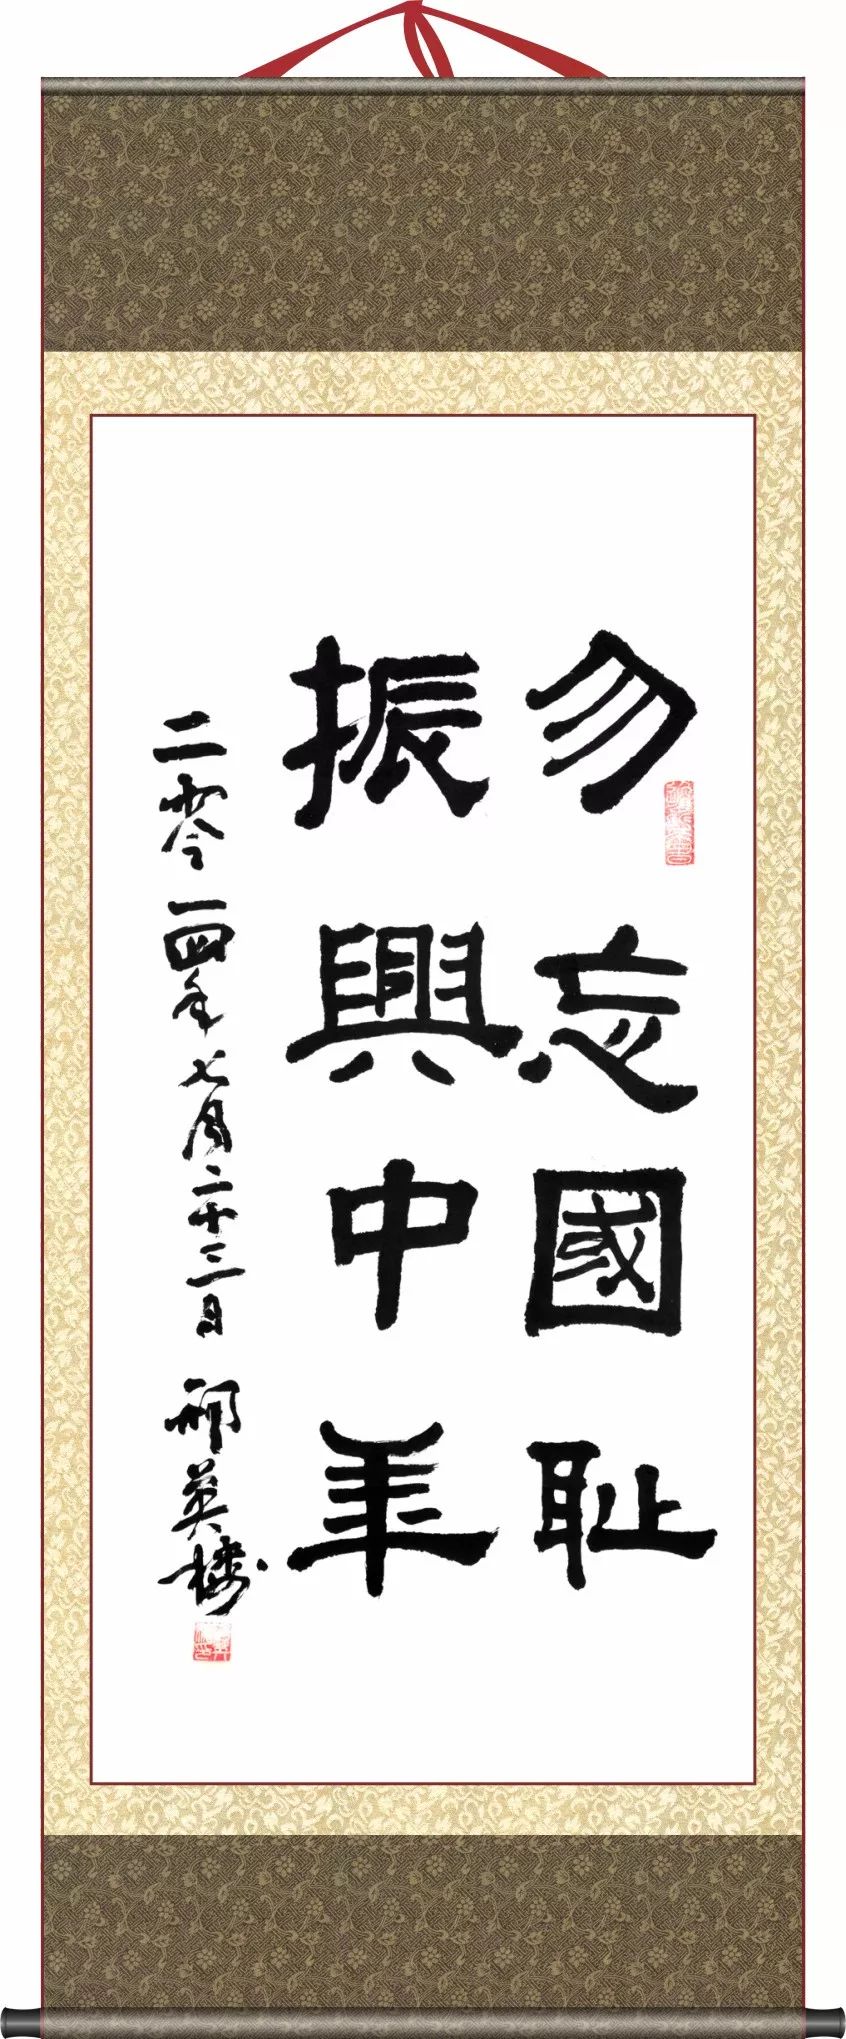 勿忘國耻
振興中華
二零一四年七月二十三日 邢英楼